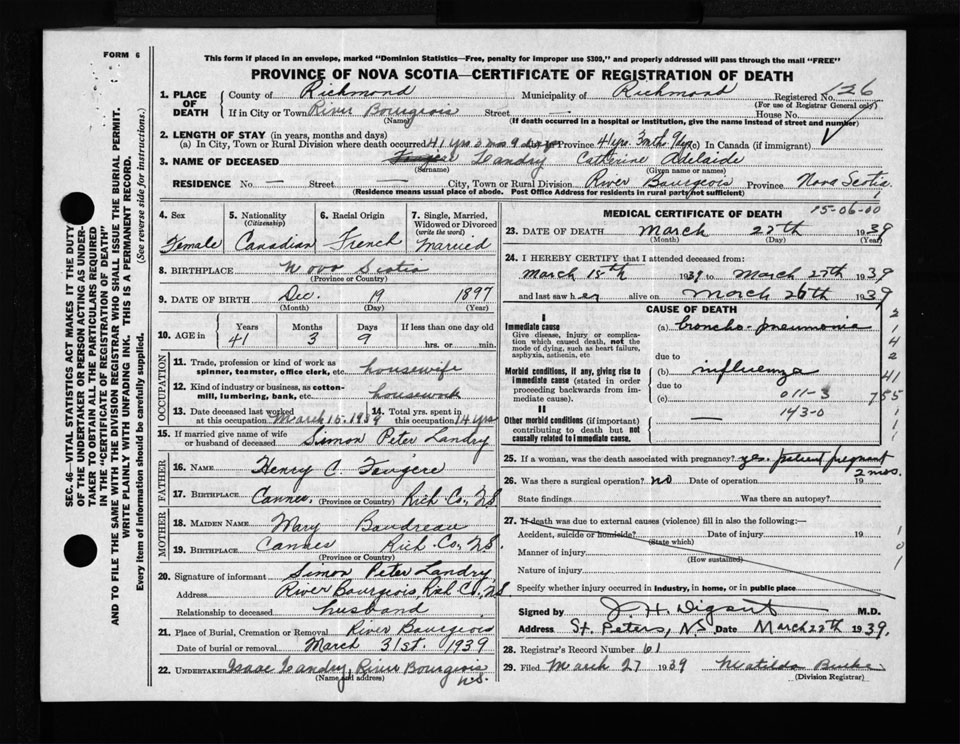 FORM 6
This form if placed in an envelope, marked "Dominion Statistics—Free, penalty for improper use $300," and properly addressed will pass through the mail "FREE"
PROVINCE OF NOVA SCOTIA—CERTIFICATE OF REGISTRATION OF DEATH
1. PLACE OF DEATH County of Richmond Municipality of Richmond Registered No. 126
(For use of Registrar General only)
If in City or Town River Bourgeois (Name) Street — House No.
(If death occurred in a hospital or institution, give the name instead of street and number)
2. LENGTH OF STAY (in years, months and days)
(a) In City, Town or Rural Division where death occurred 41 yrs 3 mos 9 days Province 41 yrs. 3 mths. 9 (c) In Canada (if immigrant)
3. NAME OF DECEASED Landry Catherine Adelaide
(Surname) (Given name or names)
RESIDENCE No. — Street — City, Town or Rural Division River Bourgeois Province Nova Scotia
(Residence means usual place of abode. Post Office Address for residents in rural parts not sufficient)
4. Sex Female
5. Nationality (Citizenship) Canadian
6. Racial Origin French
7. Single, Married, Widowed or Divorced (write the word) Married
8. BIRTHPLACE Nova Scotia
(Province or Country)
9. DATE OF BIRTH Dec. 19 1897
(Month) (Day) (Year)
10. AGE in Years 41 Months 3 Days 9 If less than one day old hrs. or min.
OCCUPATION
11. Trade, profession or kind of work as spinner, teamster, office clerk, etc. housewife
12. Kind of industry or business, as cotton-mill, lumbering, bank, etc. housework
13. Date deceased last worked at this occupation March 15. 1939 14. Total yrs. spent in this occupation 14 yrs
15. If married give name of wife or husband of deceased Simon Peter Landry
FATHER
16. NAME Henry C. Fougere
17. BIRTHPLACE Cannes Rich. Co., N.S.
(Province or Country)
MOTHER
18. MAIDEN NAME Mary Boudreau
19. BIRTHPLACE Cannes Rich. Co., N.S.
(Province or Country)
20. Signature of informant Simon Peter Landry
Address River Bourgeois, Rich. Co., N.S.
Relationship to deceased husband
21. Place of Burial, Cremation or Removal River Bourgeois
Date of burial or removal March 31st. 1939
22. UNDERTAKER Isaac Landry, River Bourgeois N.S.
(Name and address)
MEDICAL CERTIFICATE OF DEATH
15-06-00
23. DATE OF DEATH March 27th 1939
(Month) (Day) (Year)
24. I HEREBY CERTIFY that I attended deceased from:
March 15th 1939 to March 27th 1939
and last saw her alive on March 26th 1939
CAUSE OF DEATH
I
Immediate cause
Give disease, injury or complication which caused death, not the mode of dying, such as heart failure, asphyxia, asthenia, etc
(a) Broncho-pneumonia
due to
Morbid conditions, if any, giving rise to immediate cause (stated in order proceeding backwards from immediate cause).
(b) influenza
due to
(c) 011-3
143-0
II
Other morbid conditions (if important) contributing to death but not causally related to immediate cause.
2
1
4
2
41
755
1
1
25. If a woman, was the death associated with pregnancy? yes. patient pregnant 2 mos.
26. Was there a surgical operation? No Date of operation 19
State findings Was there an autopsy?
27. If death was due to external causes (violence) fill in also the following:—
Accident, suicide or homicide? Date of injury 19
(State which)
Manner of injury
(How sustained)
Nature of injury
Specify whether injury occurred in industry, in home, or in public place
1
0
1
Signed by J. H. Digout M.D.
Address St. Peters, N.S. Date March 27th 1939.
28. Registrar's Record Number 61
29. Filed March 27 1939 Matilda Burke
(Division Registrar)
SEC. 46—VITAL STATISTICS ACT MAKES IT THE DUTY OF THE UNDERTAKER OR PERSON ACTING AS UNDERTAKER TO OBTAIN ALL THE PARTICULARS REQUIRED IN THE "CERTIFICATE OF REGISTRATION OF DEATH"
AND TO FILE THE SAME WITH THE DIVISION REGISTRAR WHO SHALL ISSUE THE BURIAL PERMIT.
WRITE PLAINLY WITH UNFADING INK. THIS IS A PERMANENT RECORD.
Every item of information should be carefully supplied. (See reverse side for instructions.)